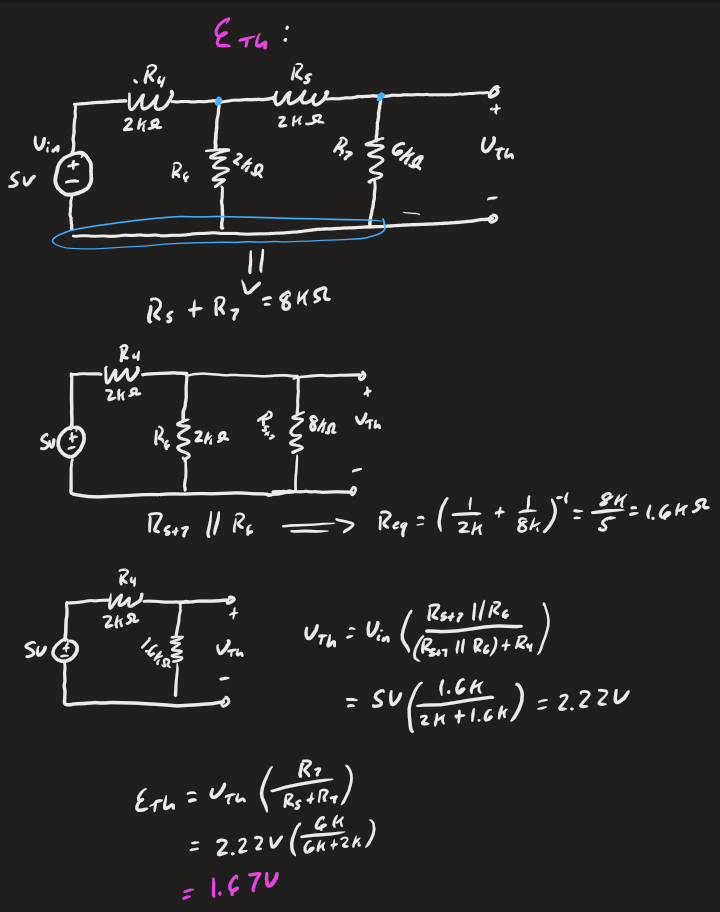 ℰTh :
.R4
R5
2KΩ
2KΩ
Vin
5V
+
−
R6
2KΩ
R7
6KΩ
+
VTh
−
R5 + R7 = 8KΩ
R4
2KΩ
5V
+
−
R6
2KΩ
8KΩ
+
VTh
−
R5+7 // R6 ⟹ Req = (1/2K + 1/8K)^-1 = 8K/5 = 1.6KΩ
R4
2KΩ
5V
+
−
1.6KΩ
+
VTh
−
VTh = Vin (R5+7 // R6 / (R5+7 // R6) + R4)
= 5V (1.6K / 2K + 1.6K) = 2.22V
ℰTh = VTh (R7 / R5 + R7)
= 2.22V (6K / 6K + 2K)
= 1.67V